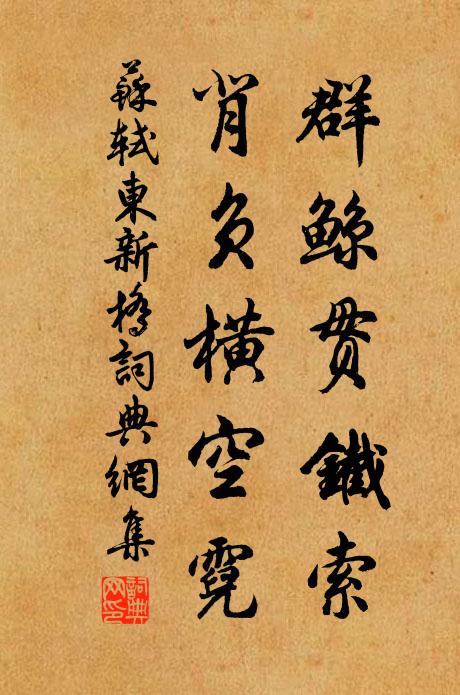 群鯨貫鐵索
背負橫空霓
蘇軾東新橋詞典網集
詞典網印